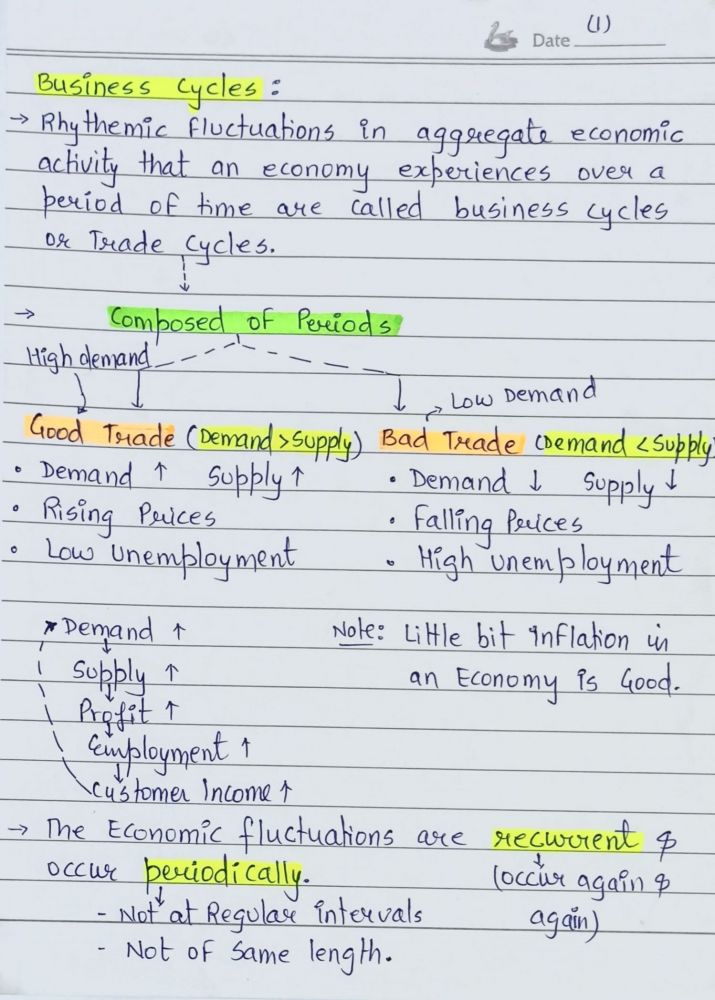 (1)
Date
Business Cycles :
→ Rhythemic fluctuations in aggregate economic
activity that an economy experiences over a
period of time are called business cycles
or Trade Cycles.
→ Composed of Periods
High demand
Low Demand
Good Trade (Demand > Supply)
• Demand ↑ Supply ↑
• Rising Prices
• Low Unemployment
Bad Trade (Demand < Supply
• Demand ↓ Supply ↓
• Falling Prices
• High Unemployment
Demand ↑
Supply ↑
Profit ↑
Employment ↑
Customer Income ↑
Note: Little bit Inflation in
an Economy is Good.
→ The Economic fluctuations are recurrent &
occur periodically.
(occur again &
again)
- Not at Regular intervals
- Not of Same length.